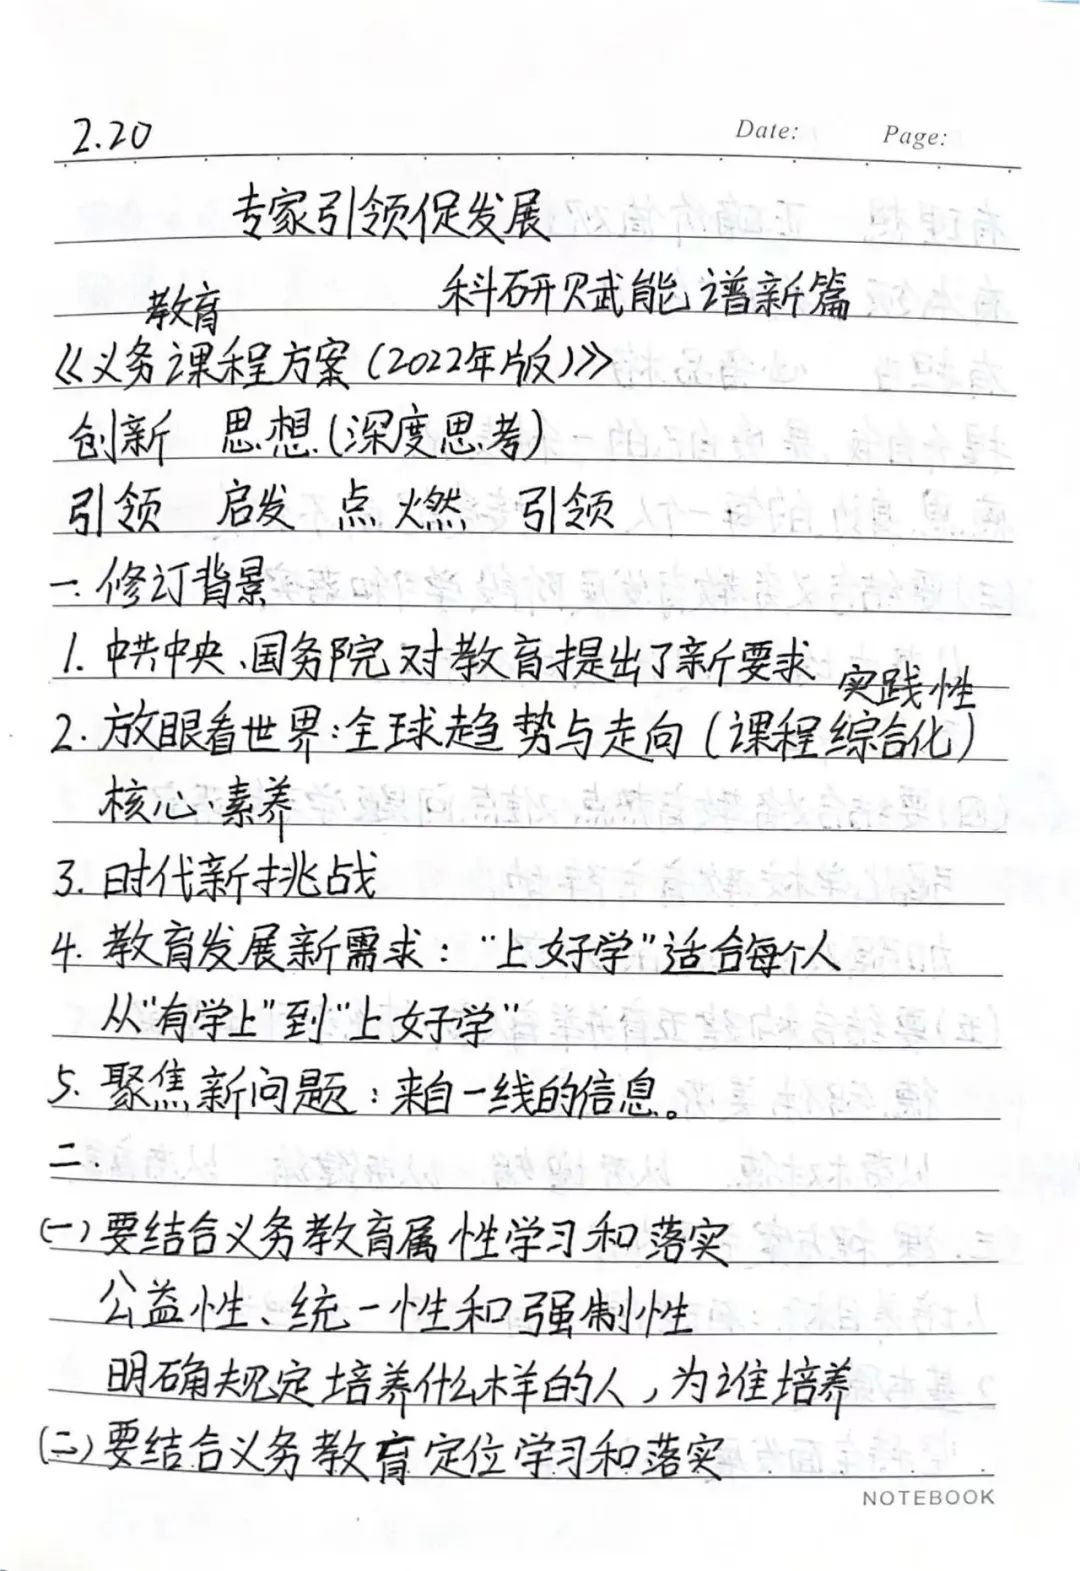 2.20
Date:
Page:
专家引领促发展
科研赋能谱新篇
教育
《义务课程方案(2022年版)》
创新 思想(深度思考)
引领 启发 点燃 引领
一.修订背景
1.中共中央、国务院对教育提出了新要求
实践性
2.放眼看世界:全球趋势与走向(课程综合化)
核心素养
3.时代新挑战
4.教育发展新需求:"上好学"适合每个人
从"有学上"到"上好学"
5.聚焦新问题:来自一线的信息。
二.
(一)要结合义务教育属性学习和落实
公益性、统一性和强制性
明确规定培养什么样的人,为谁培养
(二)要结合义务教育定位学习和落实
NOTEBOOK